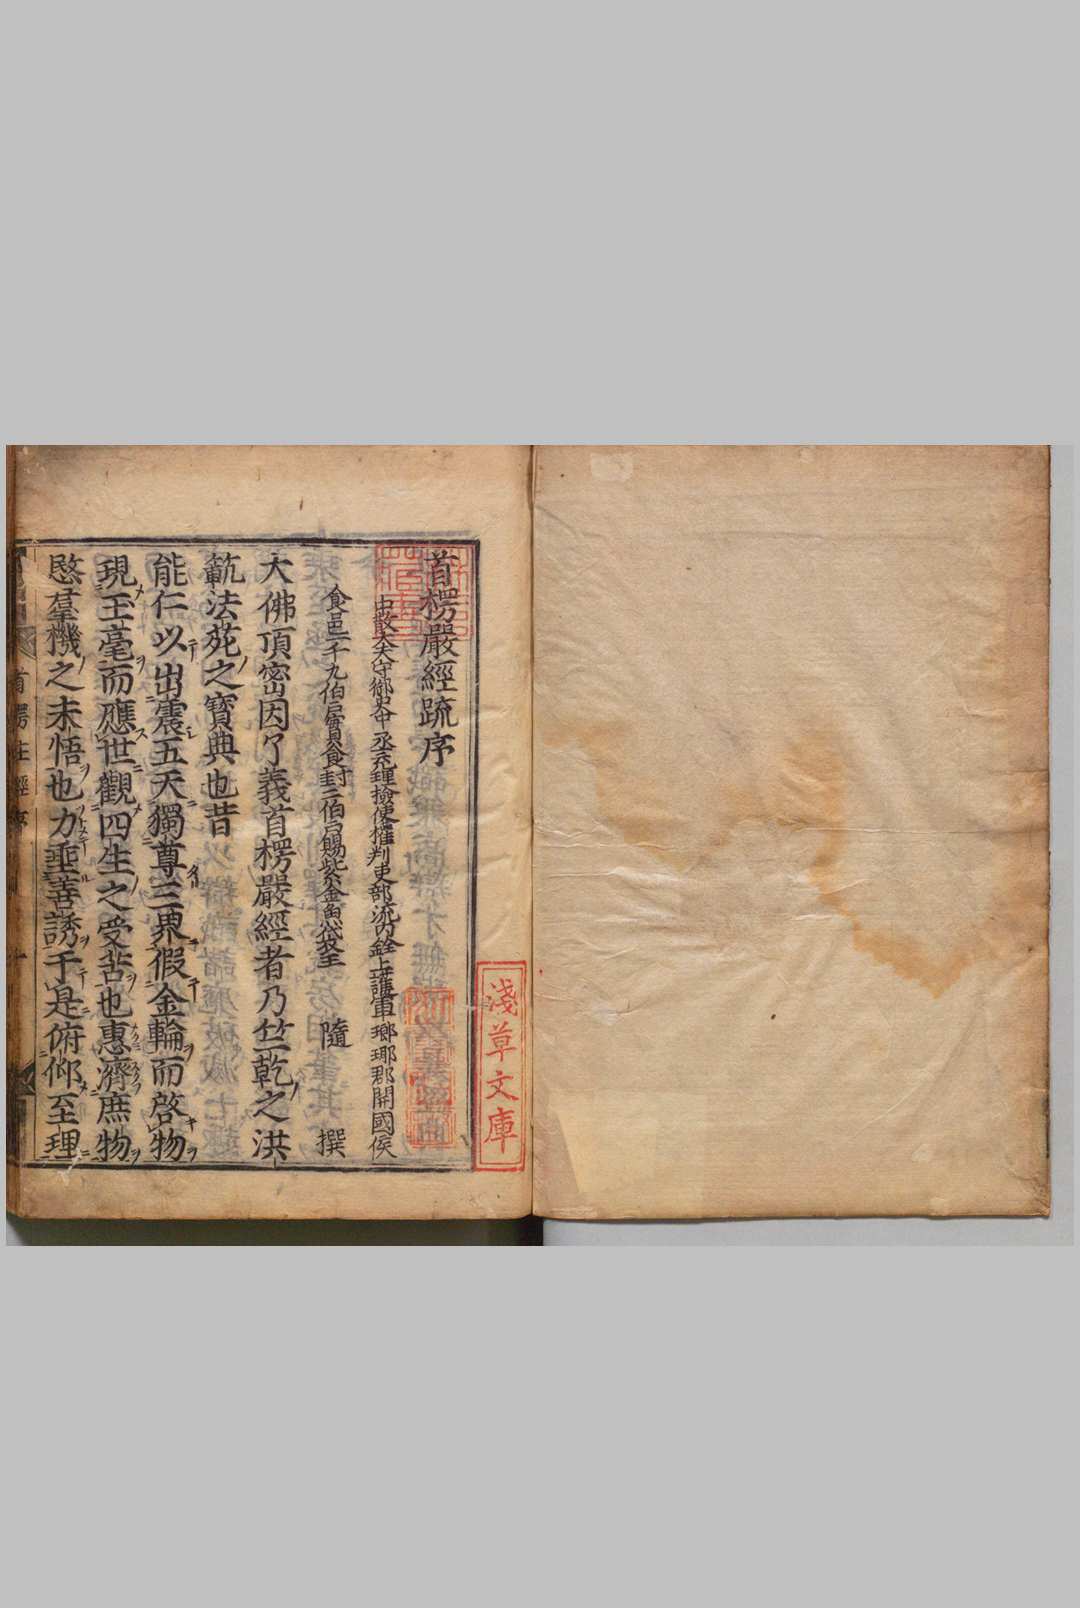 淺草文庫
首楞嚴經疏序
中散大夫守御史中丞充理撿使權判吏部流內銓上護軍瑯琊郡開國侯
食邑一千九伯戶實食封二伯戶賜紫金魚袋王 隨 撰
大佛頂密因了義首楞嚴經者乃竺乾之洪
範法苑之寶典也昔
能仁以出震五天獨尊三界假金輪而啓物
現玉毫而應世觀四生之受苦也惠濟庶物
愍羣機之未悟也力垂善誘于是俯仰至理